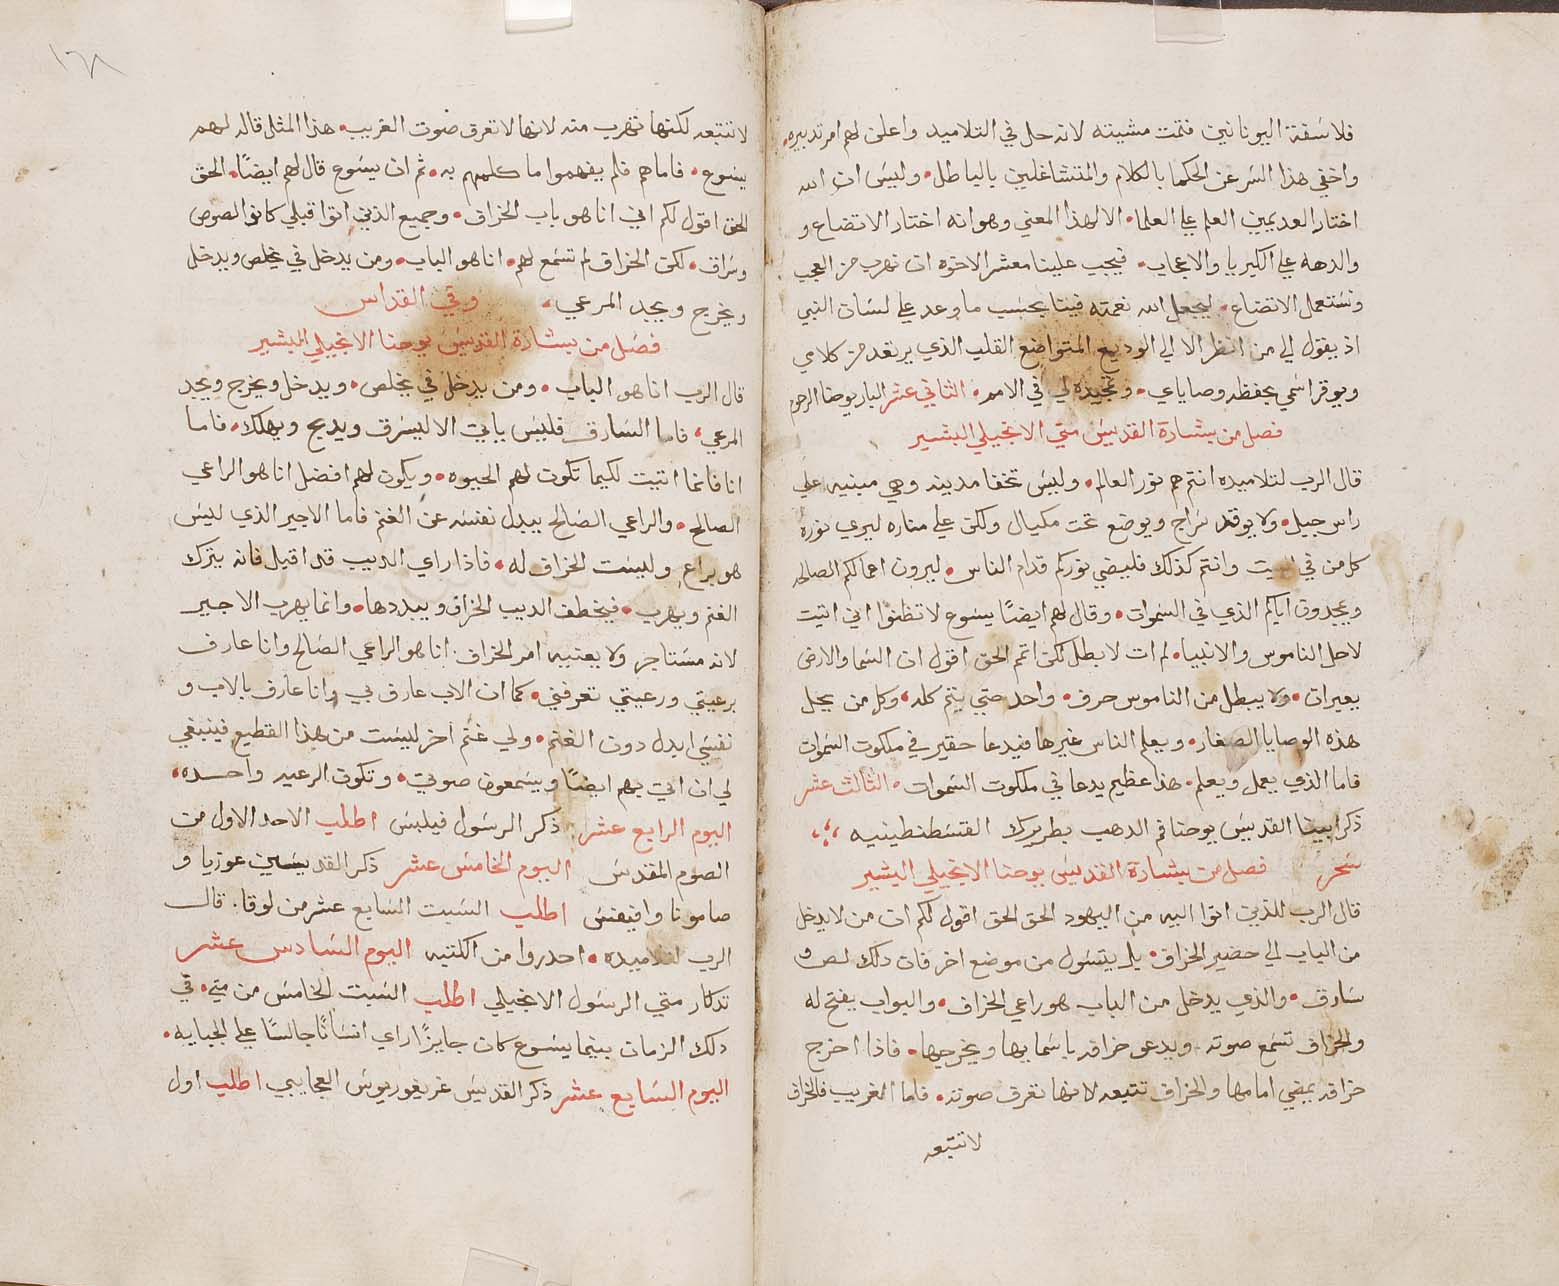 فلاسفة اليونانين فتمت مشيته لانه حل في التلاميد واعلن لهم امر تدبيره•
واخفي هذا السر عن الحكما بالكلام والمتشاغلين بالباطل• وليس ان الله
اختار العديمين العلم علي العلما• الا لهذا المعني وهو انه اختار الاتضاع و
والدهه علي الكبريا والاعجاب• فيجب علينا معشر الاخوه ان نهرب من العجب
ونستعمل الاتضاع• ليجعل الله نعمته فينا بحسب ما وعد علي لسان النبي
اذ يقول الي من انظر الا الي الوديع المتواضع القلب الذي يرتعد من كلامي
ويوقر اسمي بحفظه وصاياي• وتمجيده لي في الامم• الثاني عشر البار يوحنا الرحوم
فصل من بشارة القديس متي الانجيلي البشير
قال الرب لتلاميده انتم هم نور العالم• وليس تخفا مدينه وهي مبنيه علي
راس جبل• ولا يوقد سراج ويوضع تحت مكيال ولكن علي مناره ليري نوره
كل من في البيت وانتم كذلك فليضي نوركم قدام الناس• ليرون اعمالكم الصالحه
ويمجدون اباكم الذي في السموات• وقال لهم ايضًا يسوع لا تظنوا اني اتيت
لاحل الناموس والانبيا• لم ات لابطل لكن اتمم الحق اقول ان السما والارض
يعبران• ولا يبطل من الناموس حرف• واحد حتي يتم كله، وكل من يحل
هذه الوصايا الصغار• ويعلم الناس غيرها فيدعا حقير في ملكوت السموات
فاما الذي يعمل ويعلم• هذا عظيم يدعا في ملكوت السموات• الثالث عشر
ذكر ابينا القديس يوحنا فم الدهب بطريرك القسطنطينيه
سحر فصل من بشارة القديس يوحنا الانجيلي البشير
قال الرب للذين اتوا اليه من اليهود الحق الحق اقول لكم ان من لا يدخل
من الباب الي حضير الخراف• بل يتسول من موضع اخر فان دلك لص و
سارق• والذي يدخل من الباب هو راعي الخراف• والبواب يفتح له
والخراف تسمع صوته• ويدعو خرافه باسمايها ويخرجها• فاذا اخرج
خرافه يمضي امامها والخراف تتبعه لانها تعرف صوته• فاما الغريب فالخراف
لا تتبعه
١٢٨
لا تتبعه لكنها تهرب منه لانها لا تعرف صوت الغريب• هذا المثل قاله لهم
يسوع• فاما هم فلم يفهموا ما كلمهم به• ثم ان يسوع قال لهم ايضًا• الحق
الحق اقول لكم اني انا هو باب الخراف• وجميع الذين اتوا قبلي كانوا لصوص
وسراق• لكن الخراف لم تسمع لهم• انا هو الباب• ومن يدخل في يخلص ويدخل
ويخرج ويجد المرعي• وفي القداس
فصل من بشارة القديس يوحنا الانجيلي البشير
قال الرب انا هو الباب• ومن يدخل في يخلص• ويدخل ويخرج ويجد
المرعي، فاما السارق فليس ياتي الا ليسرق ويدبح ويهلك• فاما
انا فانما اتيت لكيما تكون لهم الحيوه• ويكون لهم افضل انا هو الراعي
الصالح• والراعي الصالح يبدل نفسه عن الغنم فاما الاجير الذي ليس
هو براع وليست الخراف له• فاذا راي الديب قد اقبل فانه يترك
الغنم ويهرب• فيخطف الديب الخراف ويبددها• وانما يهرب الاجير
لانه مستاجر ولا يعنيه امر الخراف• انا هو الراعي الصالح وانا عارف
برعيتي ورعيتي تعرفني• كما ان الاب عارف بي وانا عارف بالاب و
نفسي ابدل دون الغنم• ولي غنم اخر ليست من هذا القطيع فينبغي
لي ان اتي بهم ايضًا ويسمعون صوتي• وتكون الرعيه واحده•
اليوم الرابع عشر ذكر الرسول فيلبس اطلب الاحد الاول من
الصوم المقدس اليوم الخامس عشر ذكر القديسين عوزيا و
صامونا وافيفس اطلب السبت السابع عشر من لوقا• قال
الرب لتلاميده• احدروا من الكتبه اليوم السادس عشر
تدكار متي الرسول الانجيلي اطلب السبت الخامس من متي• في
دلك الزمان بينما يسوع كان جايزًا راي انسانًا جالسًا علي الجبايه•
اليوم السابع عشر ذكر القديس غريغوريوس العجايبي اطلب اول